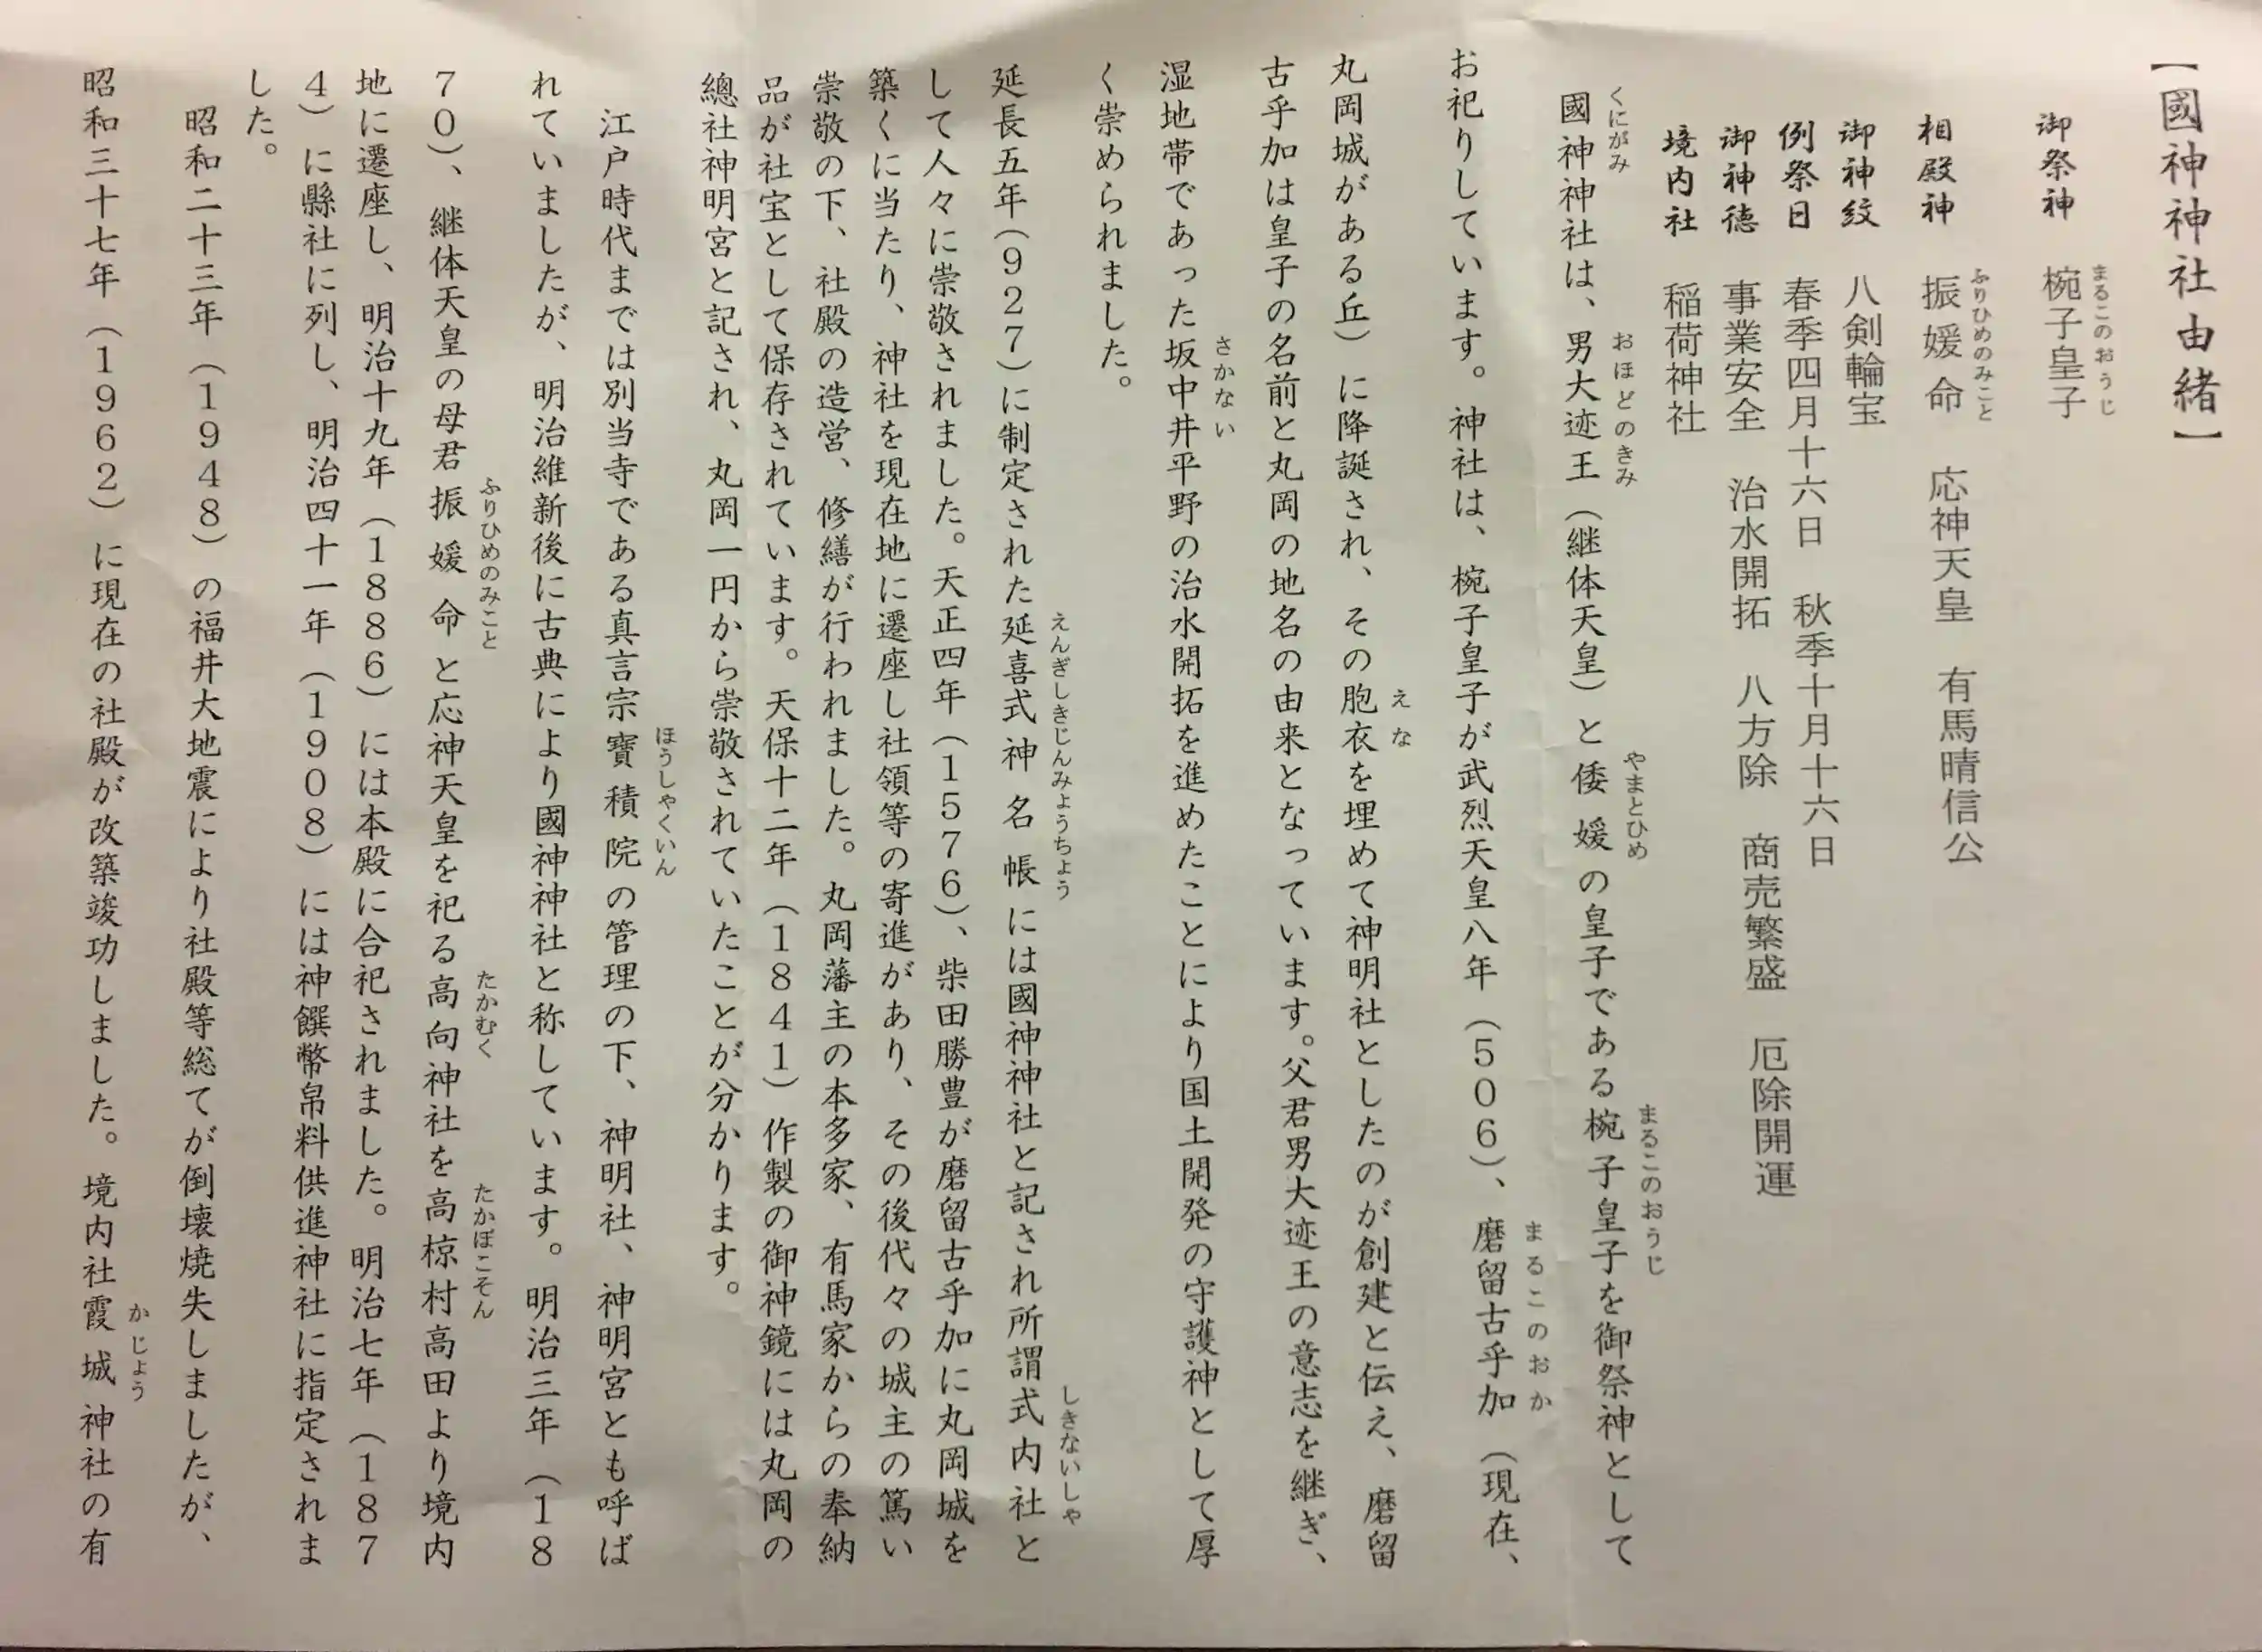 【國神神社由緒】
御祭神　椀子皇子
まるこのおうじ
相殿神　振媛命　応神天皇　有馬晴信公
ふりひめのみこと
御神紋　八剣輪宝
例祭日　春季四月十六日　秋季十月十六日
御神徳　事業安全　治水開拓　八方除　商売繁盛　厄除開運
境内社　稲荷神社
くにがみ　おほどのきみ　やまとひめ　まるこのおうじ
國神神社は、男大迹王（継体天皇）と倭媛の皇子である椀子皇子を御祭神として
まるこのおか
お祀りしています。神社は、椀子皇子が武烈天皇八年（５０６）、磨留古乎加（現在、
えな
丸岡城がある丘）に降誕され、その胞衣を埋めて神明社としたのが創建と伝え、磨留
古乎加は皇子の名前と丸岡の地名の由来となっています。父君男大迹王の意志を継ぎ、
さかない
湿地帯であった坂中井平野の治水開拓を進めたことにより国土開発の守護神として厚
く崇められました。
えんぎしきじんみょうちょう　しきないしゃ
延長五年（９２７）に制定された延喜式神名帳には國神神社と記され所謂式内社と
して人々に崇敬されました。天正四年（１５７６）、柴田勝豊が磨留古乎加に丸岡城を
築くに当たり、神社を現在地に遷座し社領等の寄進があり、その後代々の城主の篤い
崇敬の下、社殿の造営、修繕が行われました。丸岡藩主の本多家、有馬家からの奉納
品が社宝として保存されています。天保十二年（１８４１）作製の御神鏡には丸岡の
總社神明宮と記され、丸岡一円から崇敬されていたことが分かります。
ほうしゃくいん
江戸時代までは別当寺である真言宗寶積院の管理の下、神明社、神明宮とも呼ば
れていましたが、明治維新後に古典により國神神社と称しています。明治三年（１８
ふりひめのみこと　たかむく　たかぼこそん
７０）、継体天皇の母君振媛命と応神天皇を祀る高向神社を高椋村高田より境内
地に遷座し、明治十九年（１８８６）には本殿に合祀されました。明治七年（１８７
４）に縣社に列し、明治四十一年（１９０８）には神饌幣帛料供進神社に指定されま
した。
昭和二十三年（１９４８）の福井大地震により社殿等総てが倒壊焼失しましたが、
かじょう
昭和三十七年（１９６２）に現在の社殿が改築竣功しました。境内社霞城神社の有